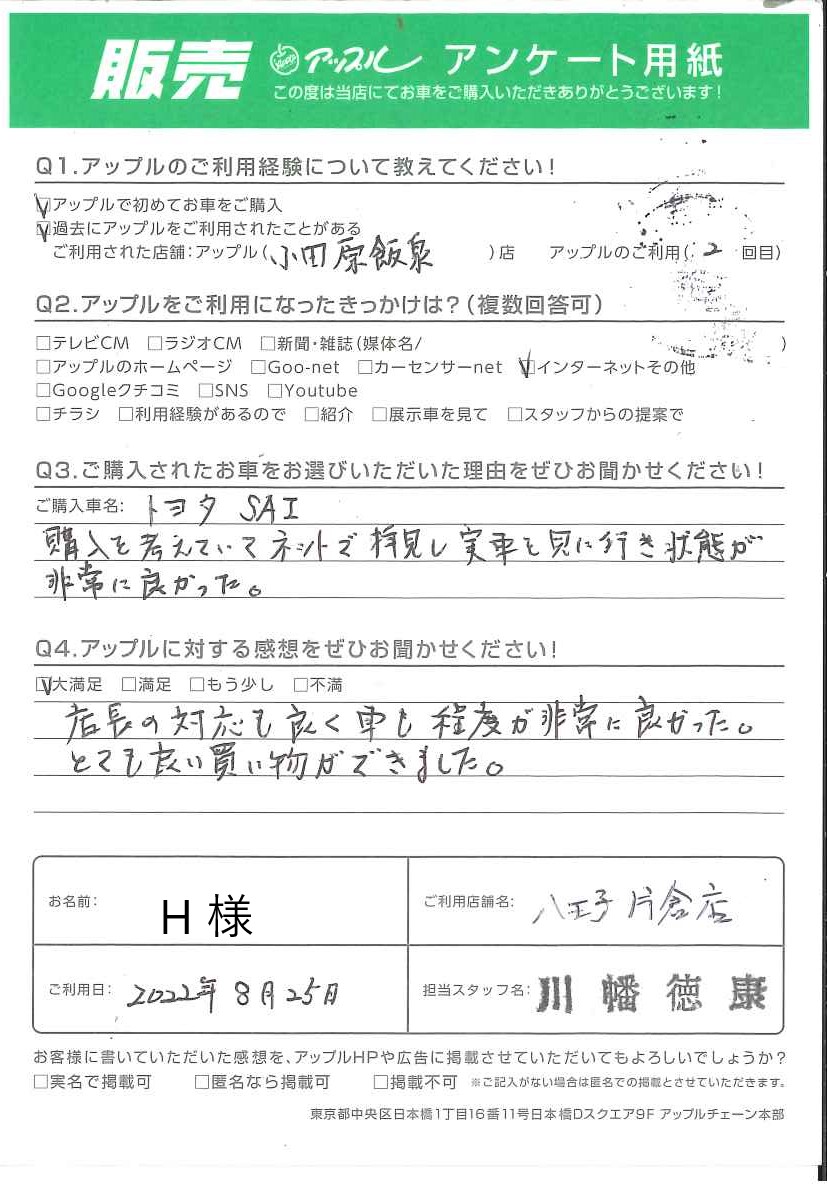 販売 アップル アンケート用紙
この度は当店にてお車をご購入いただきありがとうございます！
Q1.アップルのご利用経験について教えてください！
☑アップルで初めてお車をご購入
☑過去にアップルをご利用されたことがある
ご利用された店舗：アップル（小田原飯泉）店 アップルのご利用（2回目）
Q2.アップルをご利用になったきっかけは？（複数回答可）
□テレビCM □ラジオCM □新聞・雑誌（媒体名/ ）
□アップルのホームページ □Goo-net □カーセンサーnet ☑インターネットその他
□Googleクチコミ □SNS □Youtube
□チラシ □利用経験があるので □紹介 □展示車を見て □スタッフからの提案で
Q3.ご購入されたお車をお選びいただいた理由をぜひお聞かせください！
ご購入車名： トヨタ SAI
購入を考えていてネットで拝見し実車を見に行き状態が
非常に良かった。
Q4.アップルに対する感想をぜひお聞かせください！
☑大満足 □満足 □もう少し □不満
店長の対応も良く車も程度が非常に良かった。
とても良い買い物ができました。
お名前： H 様
ご利用店舗名： 八王子片倉店
ご利用日： 2022年8月25日
担当スタッフ名： 川幡 徳康
お客様に書いていただいた感想を、アップルHPや広告に掲載させていただいてもよろしいでしょうか？
□実名で掲載可 □匿名なら掲載可 □掲載不可 ※ご記入がない場合は匿名での掲載とさせていただきます。
東京都中央区日本橋1丁目16番11号日本橋Dスクエア9F アップルチェーン本部